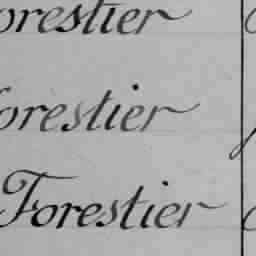 orestier
forestier
Forestier